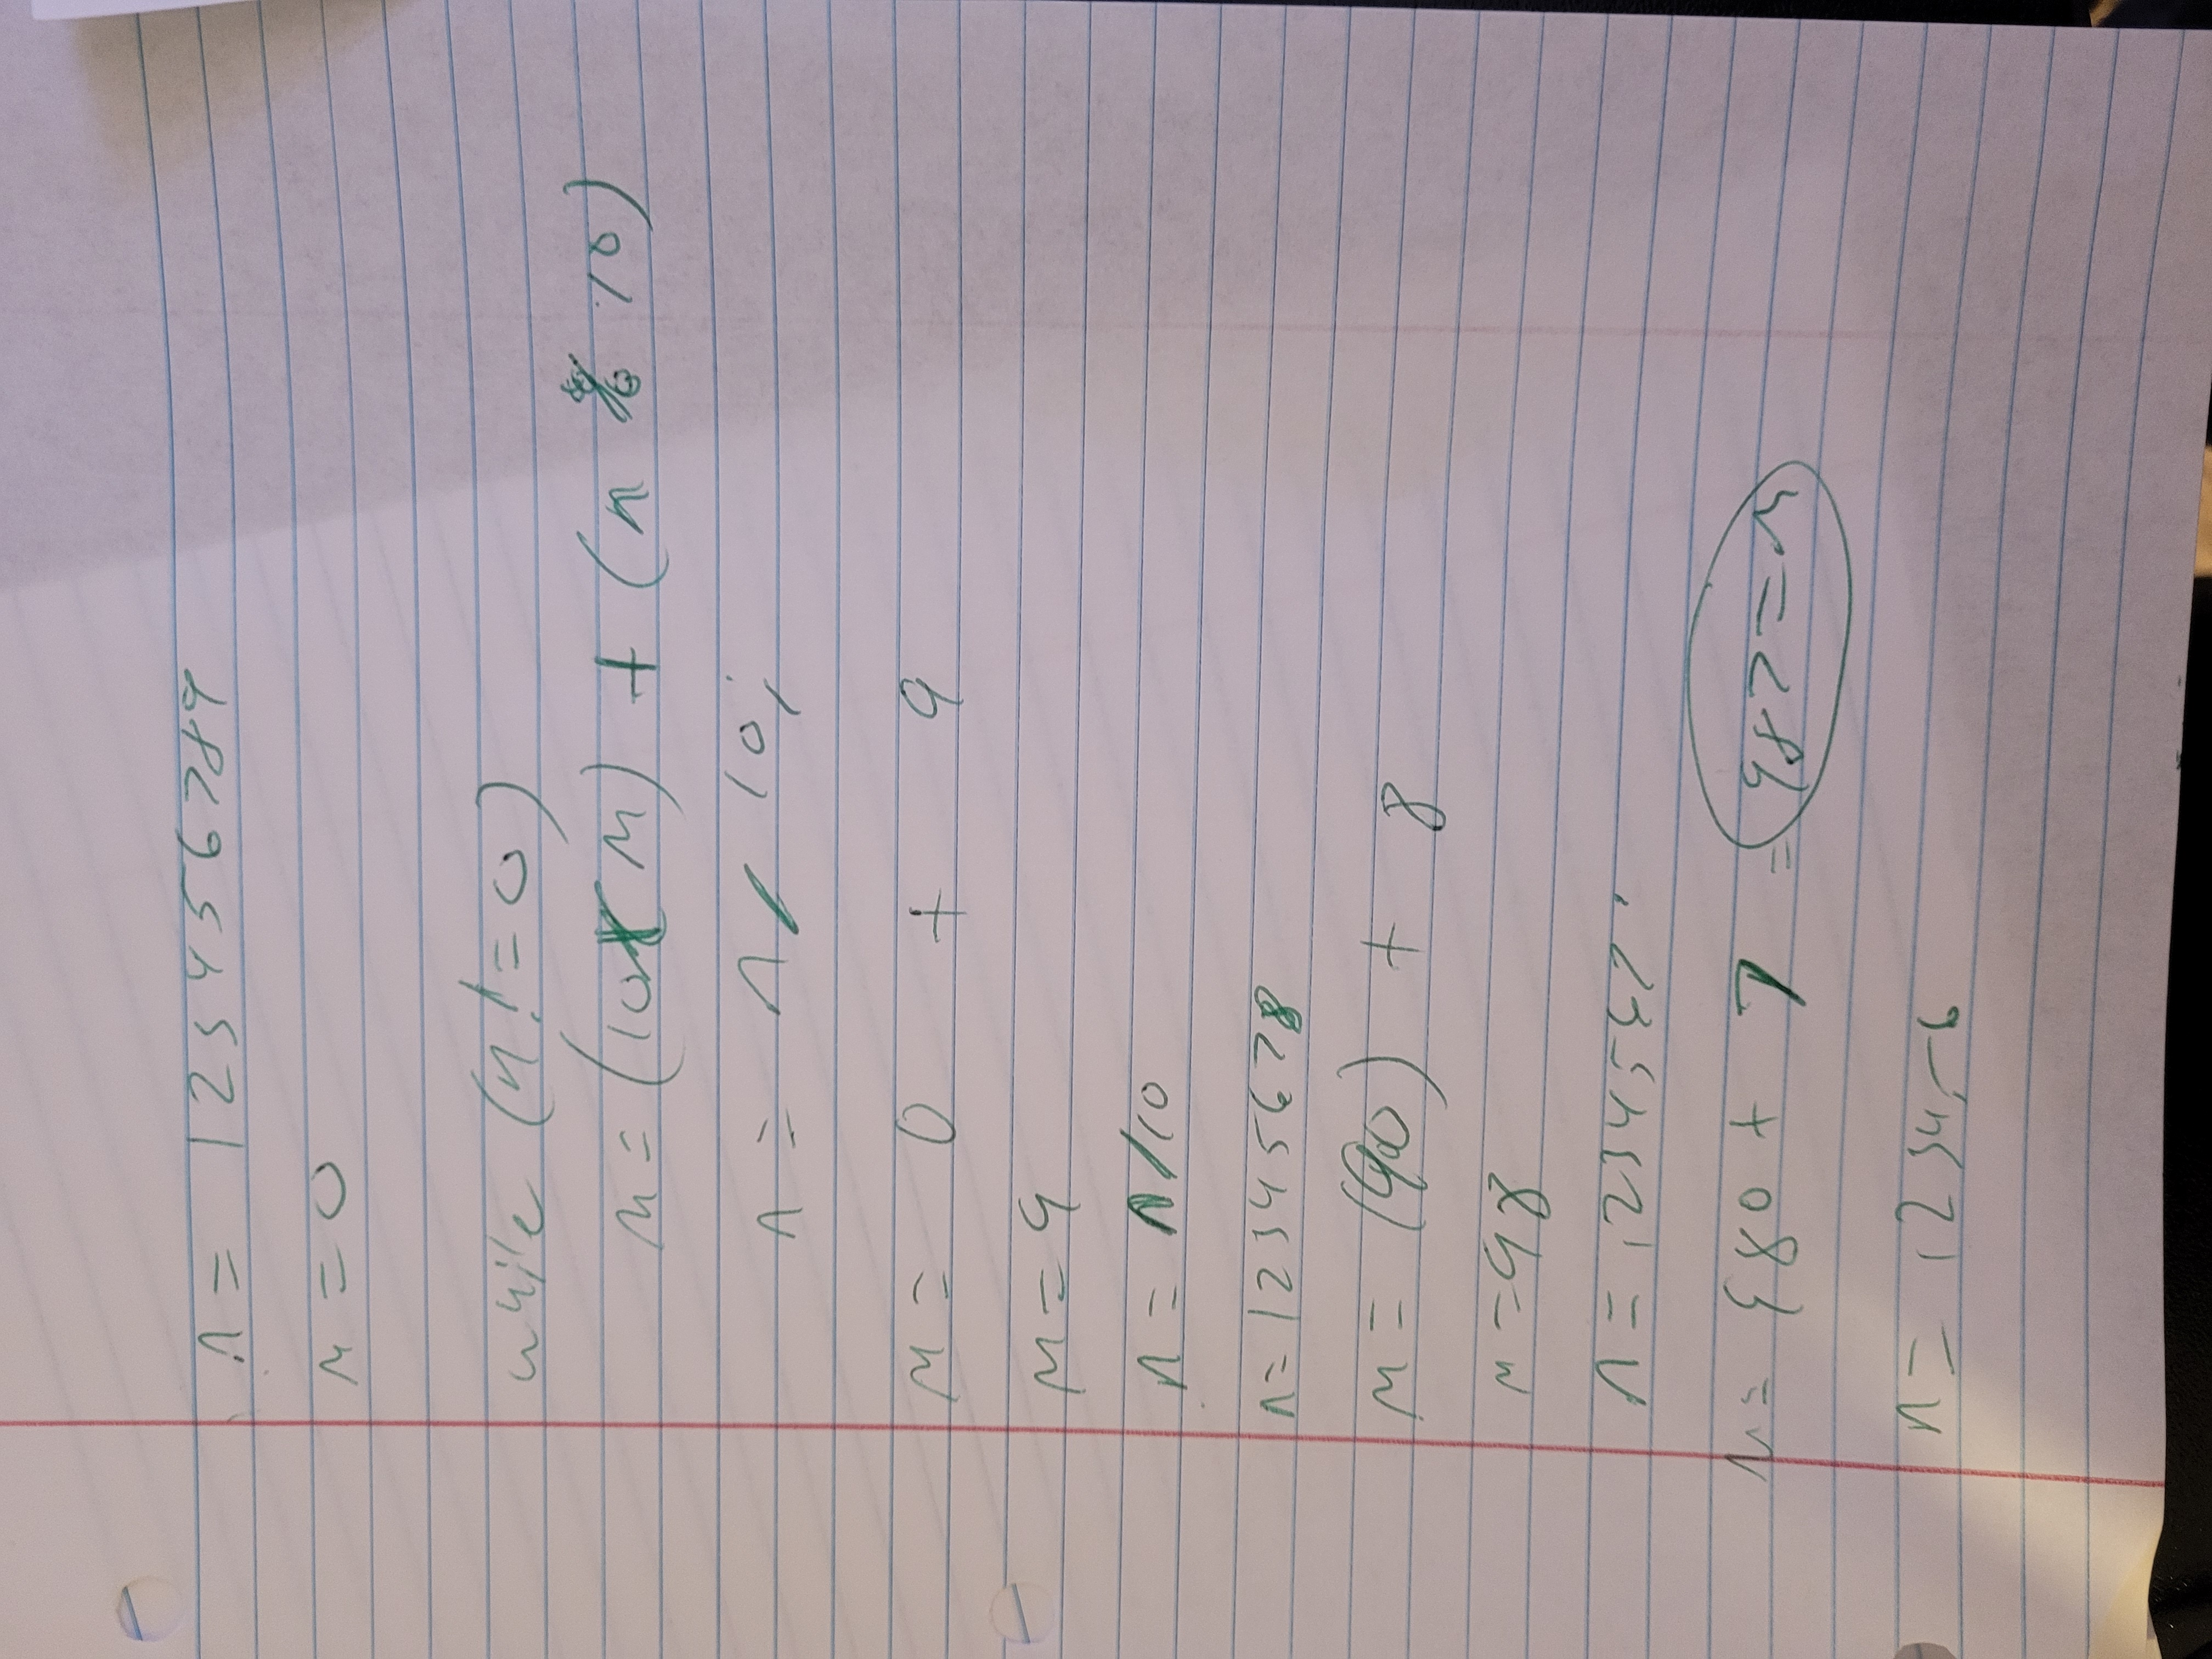 n = 123456789
m = 0
while (n != 0)
m = (10 * m) + (n % 10)
n = n / 10;
m = 0 + 9
m = 9
n = n/10
n = 12345678
m = (90) + 8
m = 98
n = 1234567
m = 980 + 7 = 987 = m
n = 123456